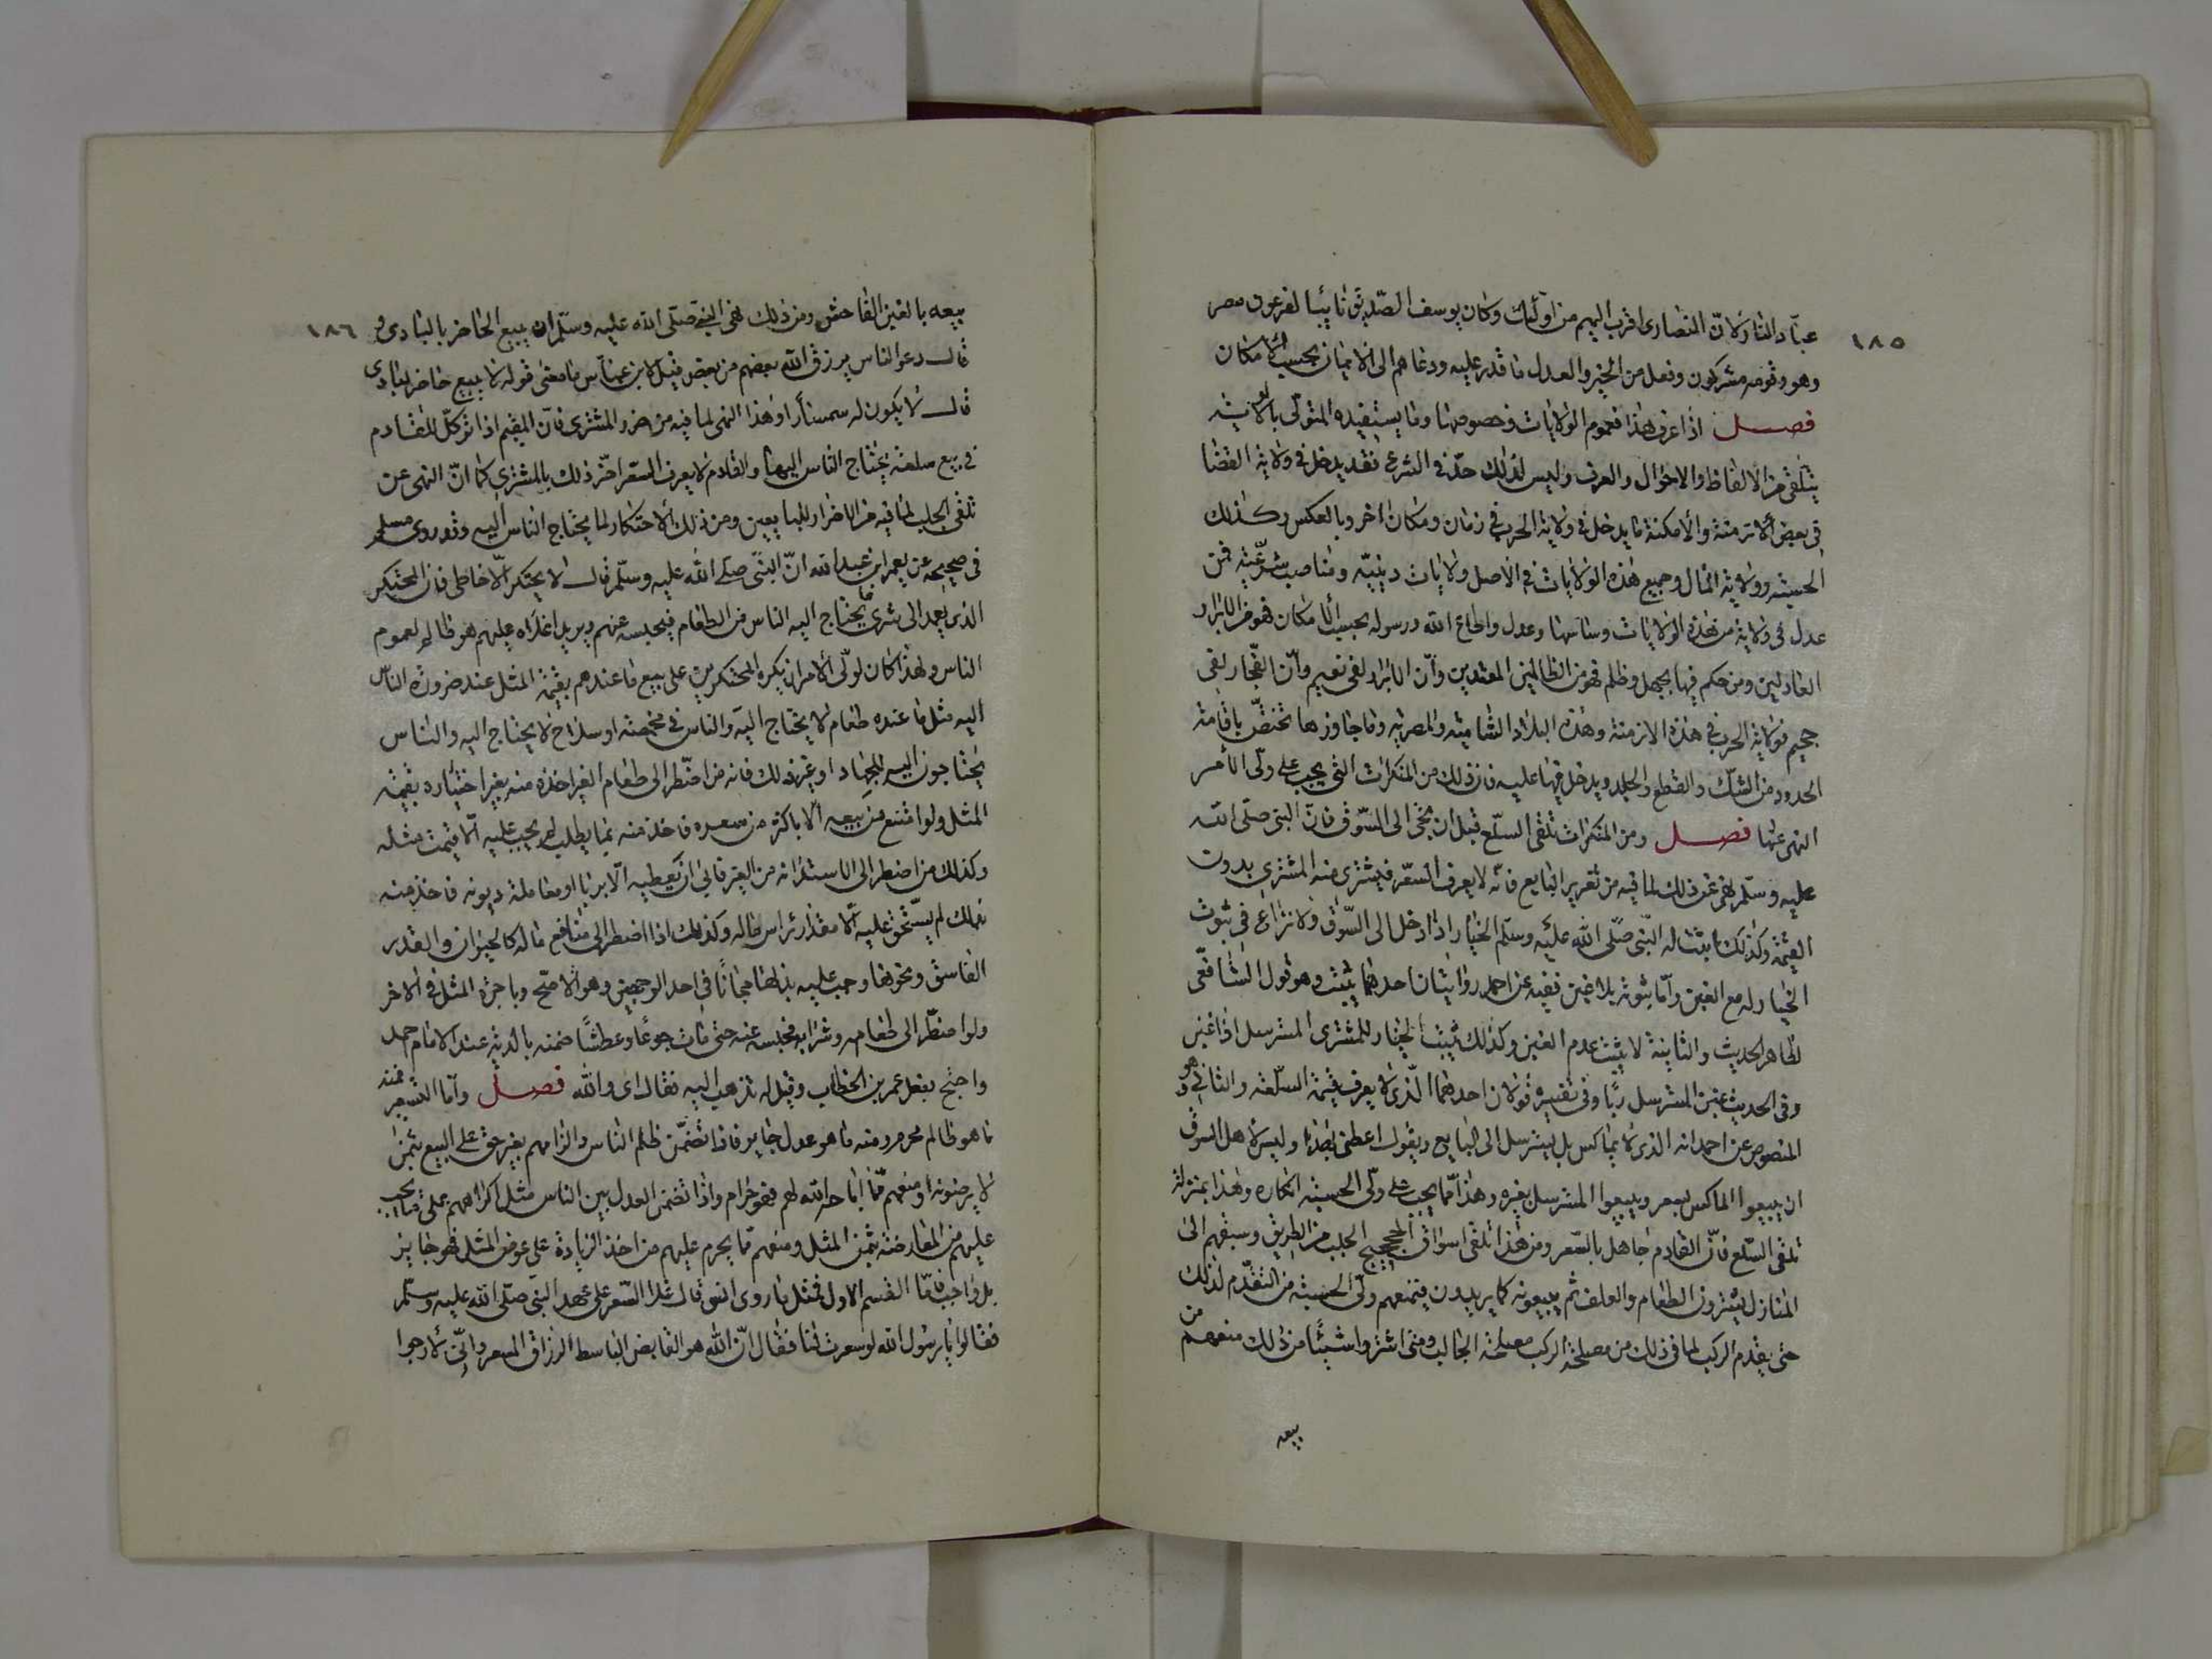 ١٨٥
عبّاد النار لانّ النصارى اقرب اليهم من اولئك وكان يوسف الصّديق نائبًا لفرعون مصر
وهو وقومه مشركون وفعل من الخير والعدل ما قدر عليه ودعاهم الى الايمان بحسب الامكان
فصل اذا عرف هذا فعموم الولايات وخصوصها وما يستفيده المتولّى بالولاية
يتلقى من الالفاظ والاحوال والعرف وليس لذلك حدّ فى الشرع فقد يدخل فى ولاية القضا
فى بعض الازمنة والامكنة ما يدخل فى ولاية الحرب فى زمان ومكان اخر وبالعكس وكذلك
الحسبة وولاية المال وجميع هذه الولايات فى الاصل ولايات دينيّه ومناصب شرعّية فمن
عدل فى ولاية من هذه الولايات وساسها وعدل واطاع الله ورسوله بحسب الامكان فهو من الابرار
العادلين ومن حكم فيها بجهل وظلم فهو من الظالمين المعتدين وانّ الابرار لفى نعيم وانّ الفجّار لفى
جحيم فولاية الحرب فى هذه الازمنة وهذه البلاد الشامية والمصريه وما جاوزها تختصّ باقامة
الحدود من القتل والقطع والجلد ويدخل فيها عليه فان ذلك من المنكرات التى يجب على ولّى الأمر
النهى عنها فصل ومن المنكرات تلقى السلّع قبل ان تجئ الى السّوق فانّ النبى صلّى الله
عليه وسلّم نهى عن ذلك لما فيه من تغرير البايع فانّه لا يعرف السّعر فيشترى منه المشترى بدون
القيمة وكذلك اثبت له النّبى صلّى الله عليه وسلّم الخيار اذا دخل الى السّوق ولا نزاع فى ثبوت
الخيار له مع الغبن وامّا ثبوته بلا غبن ففيه عن احمد روايتان احدهما يثبت وهو قول الشافعّى
لظاهر الحديث والثانية لا يثبت عدم الغبن وكذلك يثبت الخيار للمشترى المسترسل اذا غبن
وفى الحديث غبن المسترسل ربًا وفى تفسيره قولان احدهما الّذى لا يعرف قيمة السّلعة والثانى وهو
المنصوص عن احمد انه الذى لا يماكس بل يسترسل الى البايع ويقول اعطنى هذا وليس لاهل السوق
ان يبيعوا الماكس بسعر ويبيعوا المسترسل بغيره وهذا ممّا يجب على ولّى الحسبة انكاره وهذا بمنزلة
تلقى السّلع فانّ القادم جاهل بالسّعر ومن هذا تلقى اسواق الحجيج الجلب من الطريق وسبقهم الى
المنازل يشترون الطعام والعلف ثم يبيعونه كما يريدون فيمنعهم ولّى الحسبة من التقدّم لذلك
حتى يقدم الركب لما فى ذلك من مصلحة الركب ومصلحة الجالب ومتى اشتروا شيئًا من ذلك منعهم من
بيعه
١٨٦
بيعه بالغبن الفاحش ومن ذلك نهى النبى صلّى الله عليه وسلّم ان يبيع الحاضر بالبادى و
قال دعوا الناس يرزق الله بعضهم من بعض قيل لابن عبّاس ما معنى قوله لا يبيع حاضر لبادى
قال لا يكون له سمسارًا وهذا النهى لما فيه من ضرر المشترى فانّ المقيم اذا توكّل للقادم
فى بيع سلعة يحتاج الناس اليها والقادم لا يعرف السعر اضّر ذلك بالمشترى كما انّ النهى عن
تلقى الجلب لما فيه من الاضرار بالبايعين ومن ذلك الاحتكار لما يحتاج الناس اليه وقد روى مسلم
فى صحيحه عن يعمر ابن عبد الله انّ النبّى صلى الله عليه وسلّم قال لا يحتكر الّا خاطى فانّ المحتكر
الذى يعمد الى شرى ما يحتاج اليه الناس من الطعام فيحبسه عنهم ويريد اغلاه عليهم هو ظالم لعموم
الناس ولهذا كان لولّى الامر ان يكره المحتكرين على بيع ما عندهم بقيمة المثل عند ضرورة الناس
اليه مثل ما عنده طعام لا يحتاج اليه والناس فى مخمصة او سلاح لا يحتاج اليه والناس
يحتاجون اليه للجهاد او غير ذلك فانه من اضّطر الى طعام الغير اخذه منه بغير اختياره بقيمة
المثل ولو امتنع من بيعه الّا باكثر من سعره فاخذ منه بما يطلب لم يجب عليه الّا قيمة مثله
وكذلك من اضطر الى الاستدانه من الغير فابى ان يعطيه الّا بربا او معاملة ديونه فاخذ منه
ذلك لم يسّتحق عليه الّا مقدار رأس ماله وكذلك اذا اضطر الى منافع ماله كالحيوان والقدر
الفاس ونحوها وجب عليه بذلها مجانًا فى احد الوجهين وهو الاصّح وباجرة المثل فى الاخر
ولو اضطّر الى طعامه وشرابه فحبسه عنه حتى مات جوعًا وعطشًا ضمنه بالديه عند الامام احمد
واحتج بفعل عمر بن الخطاب وقيل له تذهب اليه فقال اى والله فصل وامّا التسعير فمنه
ما هو ظالم محرم ومنه ما هو عدل جايز فاذا تضّمن ظلم الناس والزامهم بغير حق على البيع بثمن
لا يرضونه او منعهم ممّا اباحه الله لهم فهو حرام واذا تضمّن العدل بين الناس مثل اكراههم على ما يجب
عليهم من المعاوضة بثمن المثل ومنعهم ممّا يحرم عليهم من اخذ الزيادة على عوض المثل فهو جايز
بل واجب فامّا القسم الاول فمثل ما روى انس قال غلا السّعر على عهد النبّى صلّى الله عليه وسلّم
فقالوا يا رسول الله لو سعرت لنا فقال انّ الله هو القابض الباسط الرزاق المسعر وانّى لارجوا